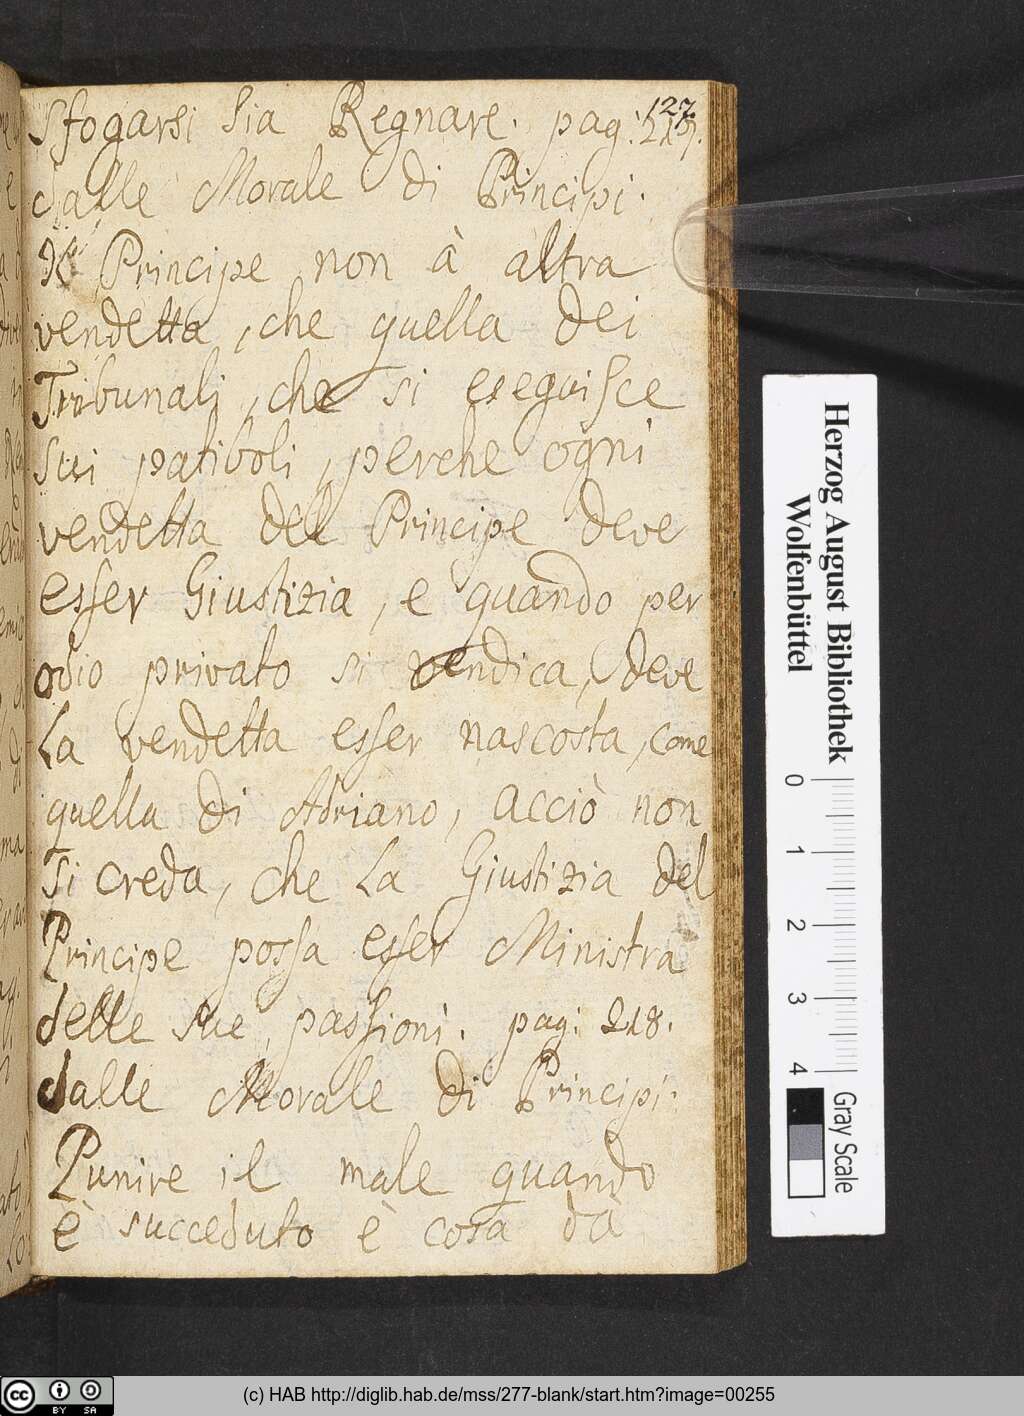 127
Sfogarsi sia Regnare. pag: 217.
dalle Morale di Principi.
Il Principe non à altra
vendetta, che quella dei
Tribunali, che si eseguisce
sui patiboli, perche ogni
vendetta del Principe deve
esser Giustizia, e quando per
odio privato si vendica, deve
La vendetta esser nascosta, come
quella di Adriano, acciò non
si creda, che La Giustizia del
Principe possa esser Ministra
delle sue passioni. pag: 218.
dalle Morale di Principi.
Punire il male quando
è succeduto è cosa da
Herzog August Bibliothek
Wolfenbüttel
0 1 2 3 4
Gray Scale
(c) HAB http://diglib.hab.de/mss/277-blank/start.htm?image=00255
cc BY SA